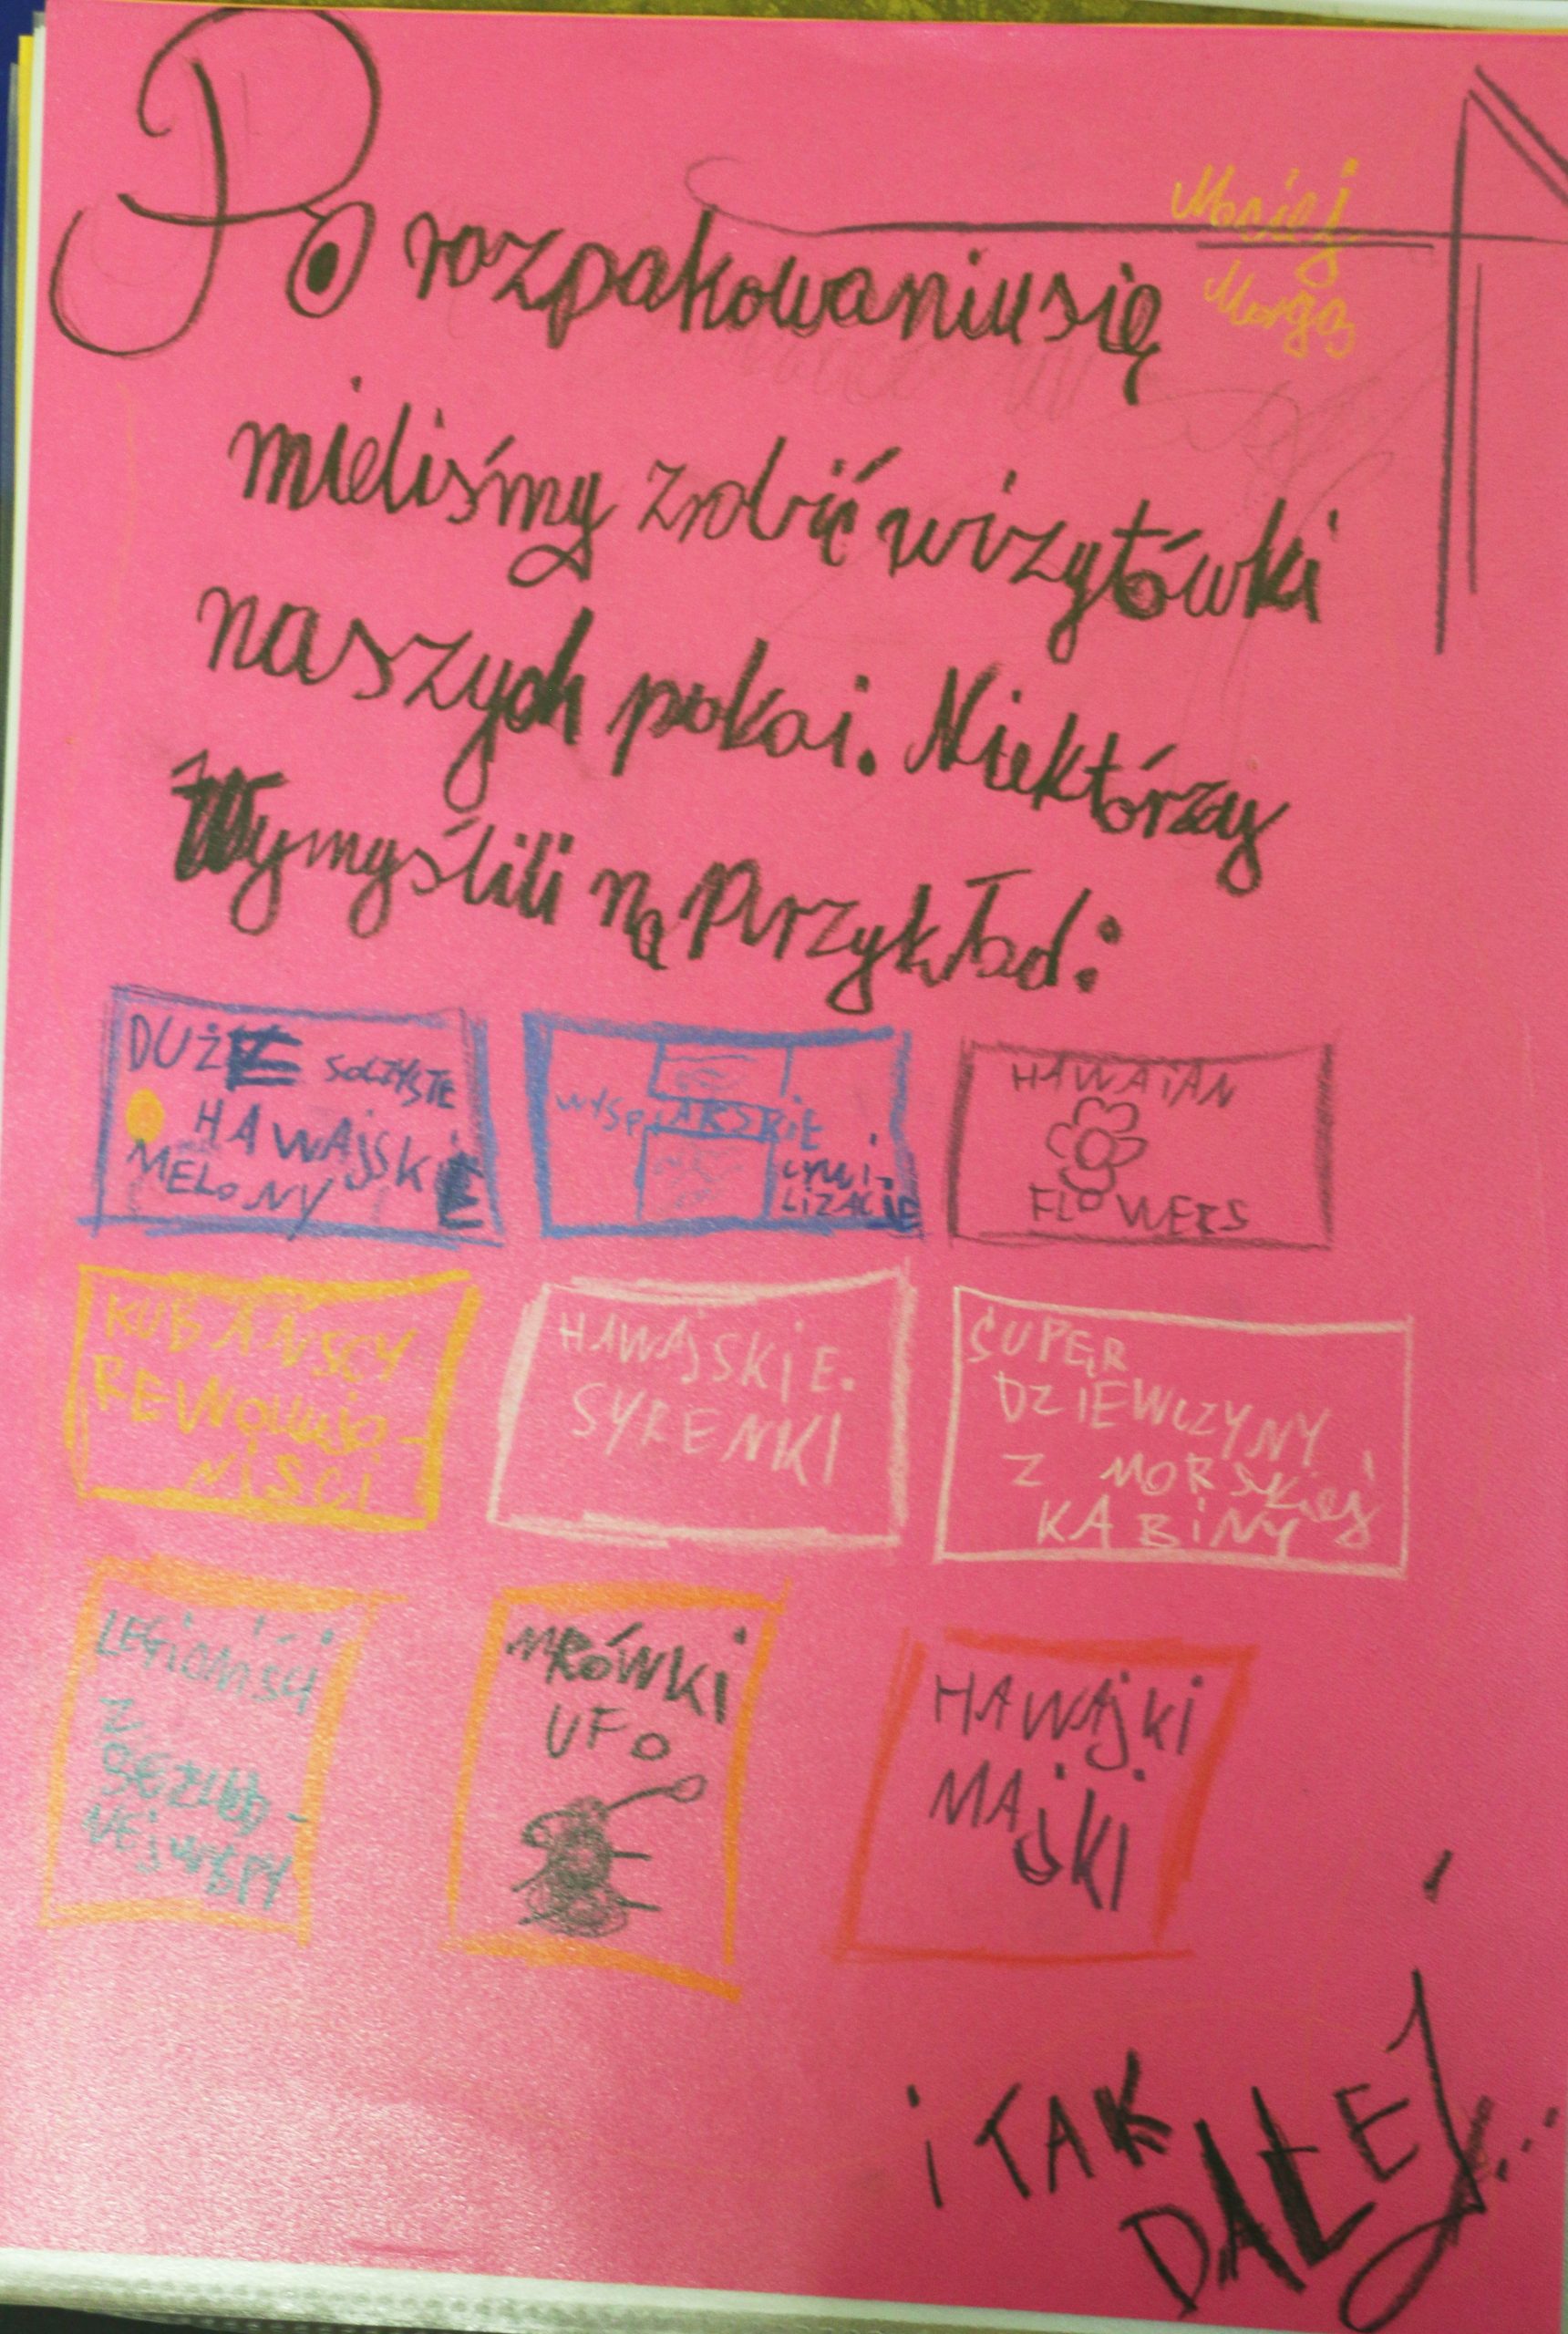 Po rozpakowaniu się
Maciej
mieliśmy zrobić wizytówki
naszych pokoi. Niektórzy
Wymyślili na Przykład:
DUŻE SOCZYSTE
HAWAJSKIE
MELONY
WYSPIARSKIE
CYWI-
LIZACJE
HAWAIAN
FLOWERS
KUBAŃSCY
REWOLUCJO-
NIŚCI
HAWAJSKIE.
SYRENKI
SUPER
DZIEWCZYNY
Z MORSKIEJ
KABINY
LEGIONIŚCI
Z
BEZLUD-
NEJ WYSPY
MRÓWKI
UFO
HAWAJKI
MAJKI
i TAK
DALEJ...